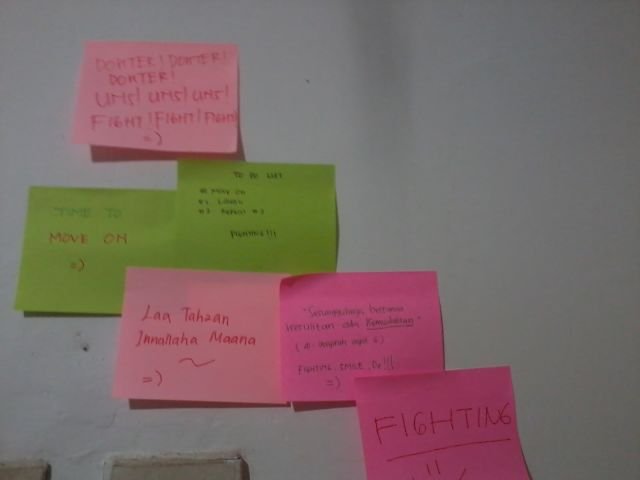 DOKTER! DOKTER!
DOKTER!
UMS! UMS! UMS!
FIGHT! FIGHT! FIGHT!
=)
TIME TO
MOVE ON
=)
TO DO LIST
#1 MOVE ON
#2 LUPAIN
#3 REPEAT #2
FIGHTING!!!
Laa Tahzan
Innallaha Maana
=)
"Sesungguhnya bersama
kesulitan ada Kemudahan"
FIGHTING, SMILE, Do!!!
=)
FIGHTING